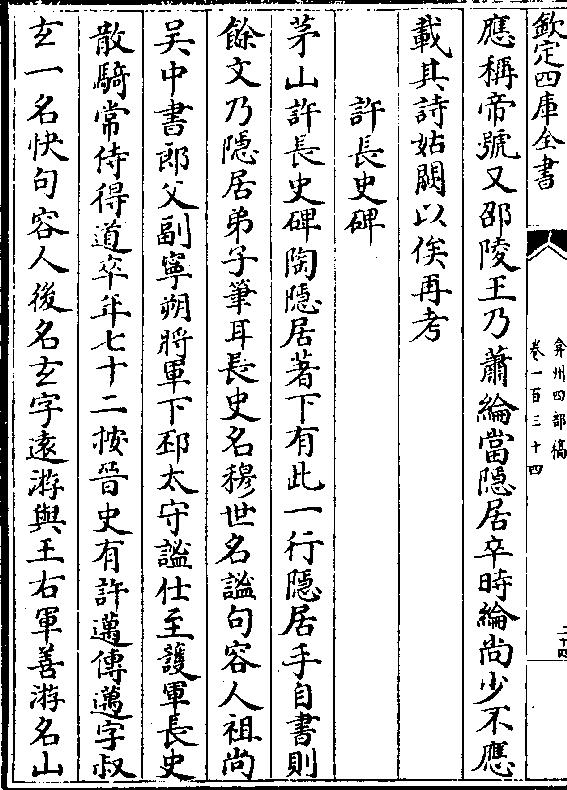 欽定四庫全書
弇州四部稿
卷一百三十四
二十四
應稱帝號又邵陵王乃蕭綸當隱居卒時綸尚少不應
載其詩姑闕以俟再考
許長史碑
茅山許長史碑陶隱居著下有此一行隱居手自書則
餘文乃隱居弟子筆耳長史名穆世名謐句容人祖尚
吴中書郎父副寧朔將軍下邳太守謐仕至護軍長史
散騎常侍得道卒年七十二按晉史有許邁傳邁字叔
玄一名快句容人後名玄字逺游與王右軍善游名山